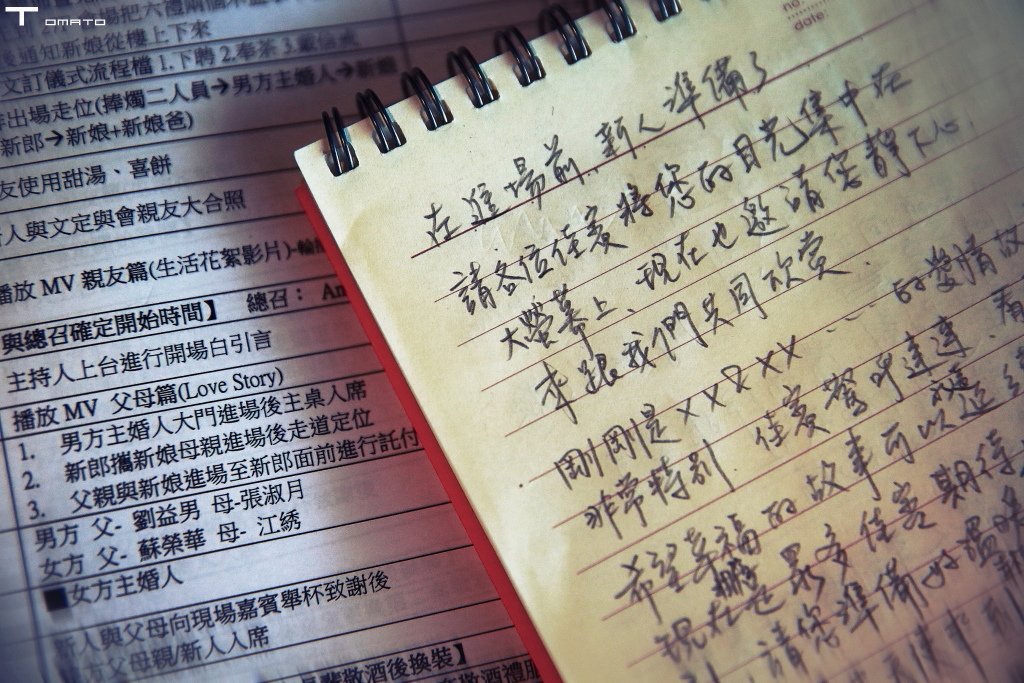 TOMATO
場把六禮
通知新娘從樓上下來
文訂儀式流程檔 1.下聘 2.奉茶 3.
出場走位(捧燭二人員→男方主婚人→新
新郎→新娘+新娘爸)
友使用甜湯、喜餅
人與文定與會親友大合照
播放 MV 親友篇(生活花絮影片)-
與總召確定開始時間】 總召： An
主持人上台進行開場白引言
播放 MV 父母篇(Love Story)
1. 男方主婚人大門進場後主桌人席
2. 新郎攜新娘母親進場後走道定位
3. 父親與新娘進場至新郎面前進行託付
男方 父- 劉益男 母-張淑月
女方 父- 蘇榮華 母- 江綉
■女方主婚人
新人與父母向現場嘉賓舉杯致謝後
方父母親/新人入席
敬酒後換裝】
敬酒禮服
no.
date.
在進場前,新人準備了
請各位佳賓將您的目光集中在
大螢幕上、現在也邀請您靜下心,
來跟我們共同欣賞.
剛剛是××&××...的愛情故
非常特別.佳賓
希望幸福的故事可以
現在也眾多佳賓期待
請您準備好